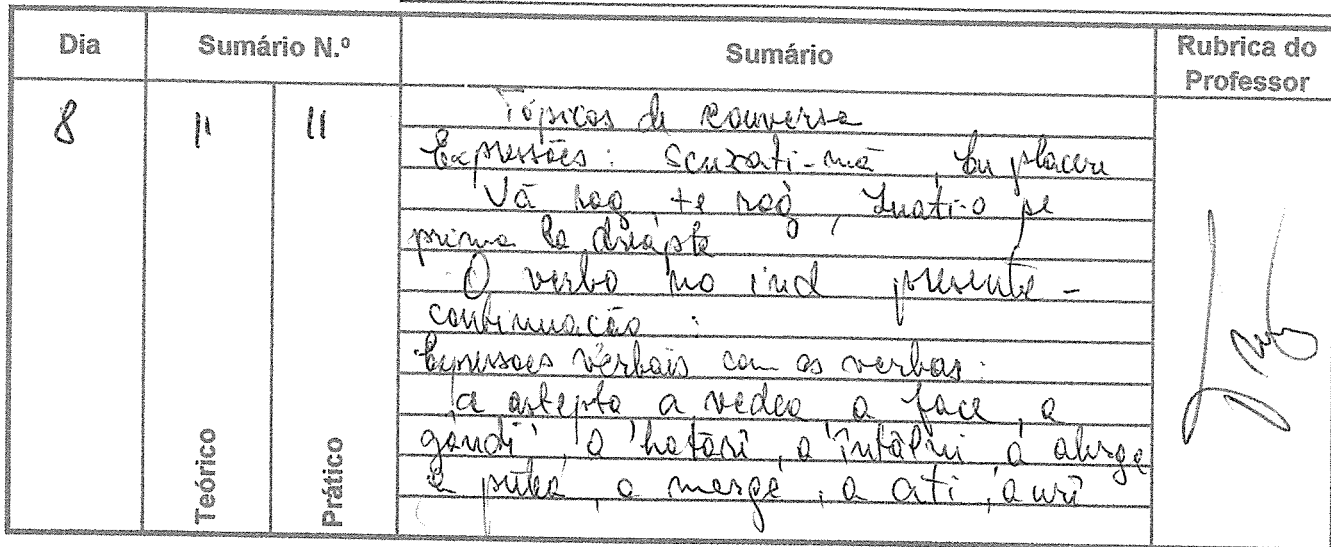 Dia Sumário N.º Sumário Rubrica do Professor
8 11 11 Tópicos de conversa
Expressões: Scuzati-mă, cu placere
Vă rog, te rog, Luati-o pe
prima la dreapta
O verbo no ind presente -
continuação:
Expressões verbais com os verbos:
a astepta a vedea a face, a
gândi, a hotărî, a întâlni a alerge
a putea, a merge, a
Teórico
Prático